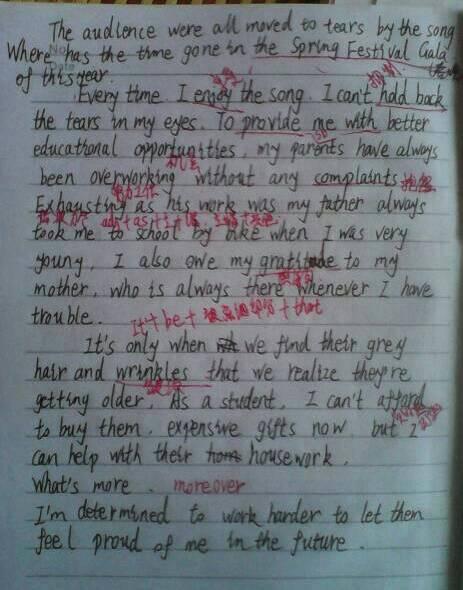 The audience were all moved to tears by the song
Where has the time gone in the Spring Festival Gala
of this year.
Every time I enjoy the song. I can't hold back
the tears in my eyes. To provide me with better
educational opportunities, my parents have always
机会
been overworking without any complaints 抱怨
Exhausting as his work was my father always
adj + as + 主 + 谓
took me to school by bike when I was very
young, I also owe my gratitude to my
mother, who is always there whenever I have
trouble.
It + be + 被强调部分 + that
It's only when we find their grey
hair and wrinkles that we realize they're
getting older. As a student, I can't afford
to buy them. expensive gifts now. but I
can help with their housework.
What's more. moreover
I'm determined to work harder to let them
feel proud of me in the future.